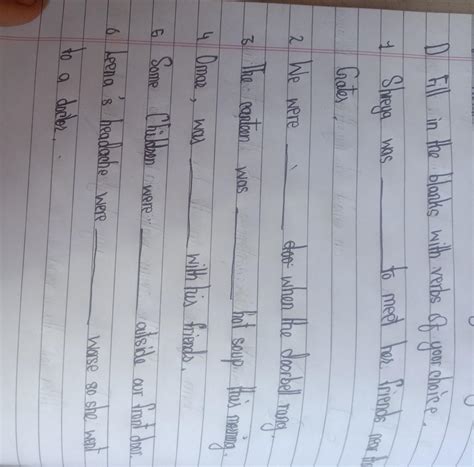 D Fill in the blanks with verbs of your choice.
1 Shreya was ______ to meet her friends near the
Gates.
2 We were ______ doo when the doorbell rang.
3 The captain was ______ hot soup this morning.
4 Omar, was ______ with his friends.
5 Some Children were ______ outside our front door.
6 Leena's headache were ______ worse so she went
to a doctor.